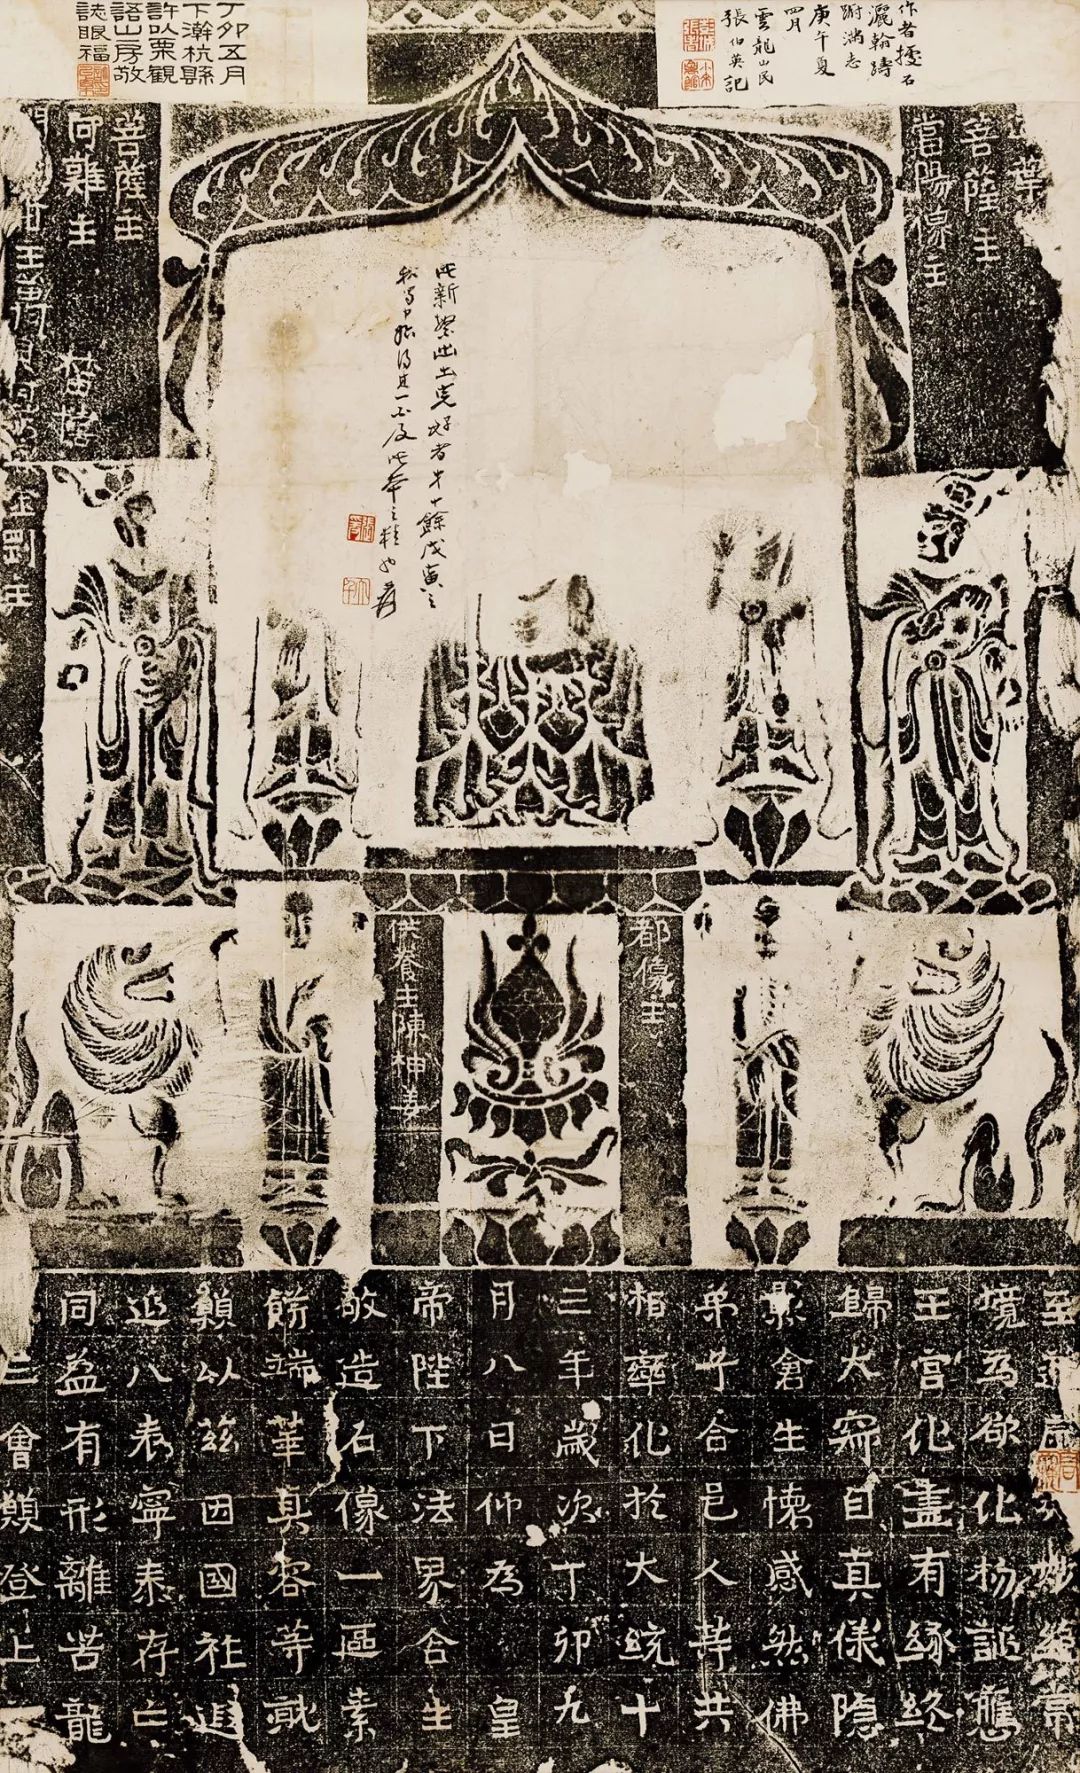 作者擾石
灑翰躊
躇滿志
庚午夏
四月
雲龍山民
張伯英記
丁卯五月
下澣杭縣
許以栗觀
語山房敬
誌眼福
葉
菩薩主
當陽像主
此新出土完好者十餘戊寅之
得其一不及此本之精也
菩薩主
阿難主
金罡主
都像主
供養主陳神姜
至 妙絕常
境為欲化物應
王宮化盡有緣終
歸大寂自真儀隱
影倉生懷感然佛
弟子合邑人等共
相率化於大統十
三年歲次丁卯九
月八日仰為 皇
帝陛下法界含生
敬造石像一區素
餝端華真容等
願以茲因國社遐
延八表寧泰存亡
同益有形離苦龍
三會願登上一